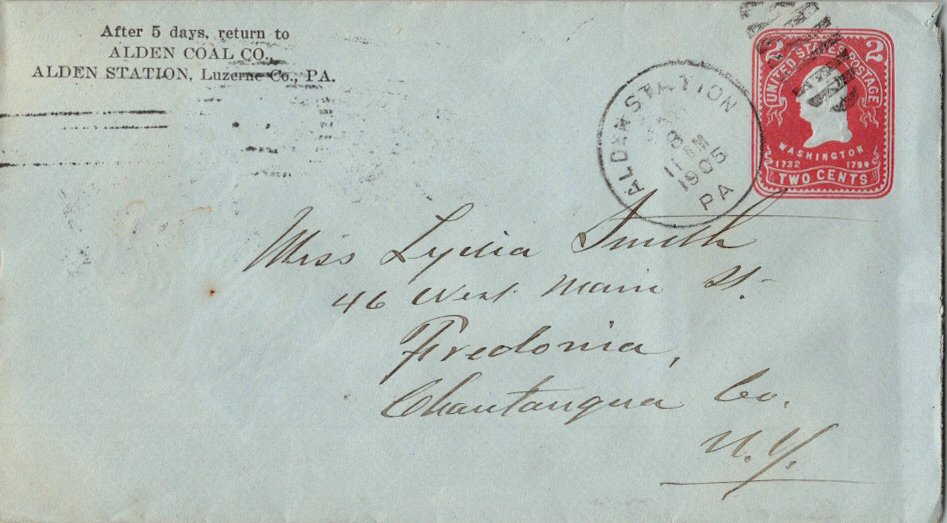 After 5 days, return to
ALDEN COAL CO.,
ALDEN STATION, Luzerne Co., PA.
ALDEN STATION
8
11 AM
1905
PA
2 2
UNITED STATES POSTAGE
WASHINGTON
1732 1799
TWO CENTS
Miss Lydia Smith
46 West Main St.
Fredonia,
Chautauqua Co.
N.Y.